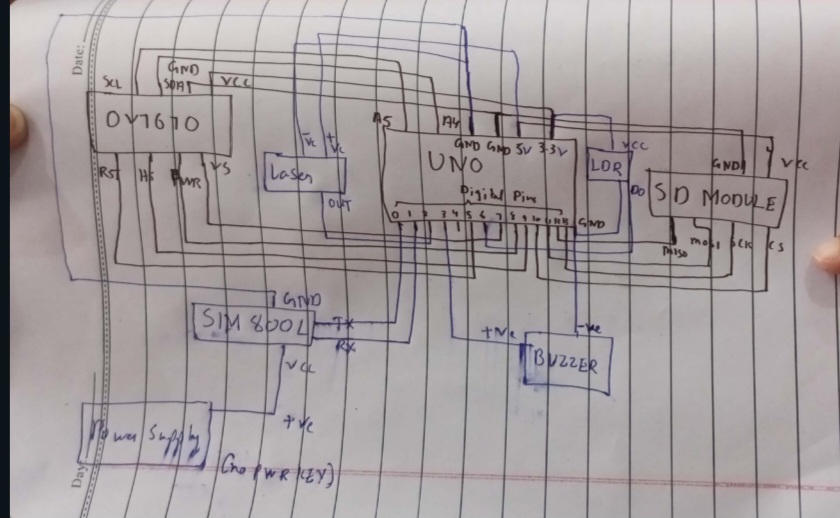 Date:
GND
SCL
SDA
VCC
OV7670
RST
HS
PWR
VS
-Vc
+Vc
Laser
OUT
A5
A4
GND GND 5V 3.3V
UNO
Digital Pins
0 1 2 3 4 5 6 7 8 9 10 11 12 13
GND
VCC
LDR
DO
GND
VCC
SD MODULE
MISO
MOSI
SCK
CS
GND
SIM 800L
TX
RX
VCC
+Ve
-Ve
BUZZER
+Vc
Power Supply
(no PWR KEY)
Day